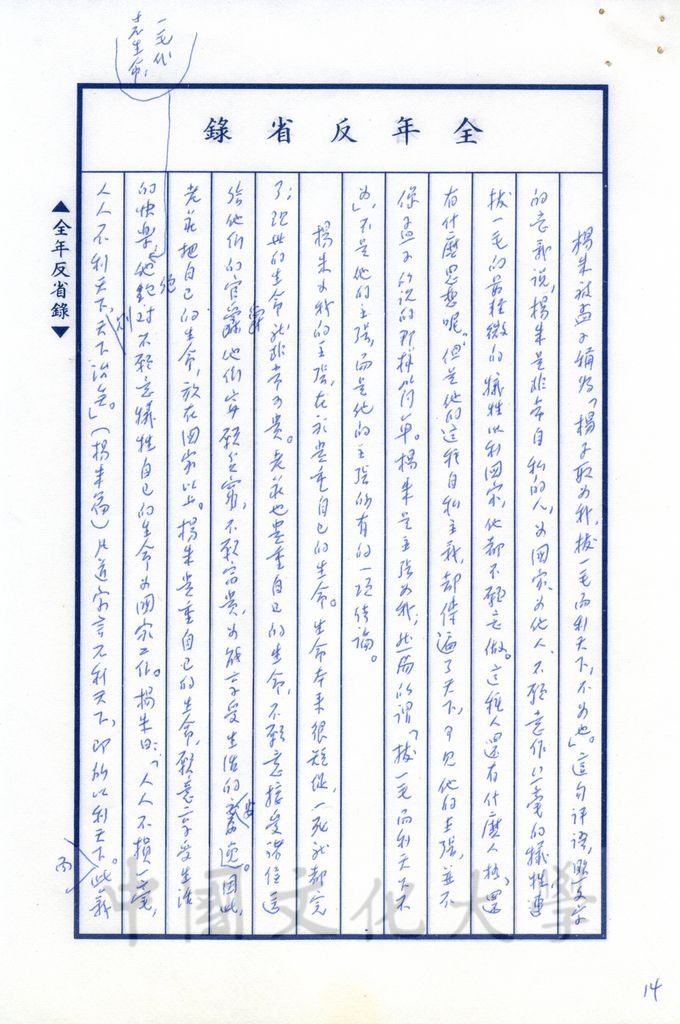 一毛代
表生命，
全年反省錄
▲全年反省錄▼
楊朱被孟子稱為「楊子取為我，拔一毛而利天下，不為也」。這句評語，照文字
的意義說，楊朱是非常自私的人，為國家為他人，不願意作一毫的犧牲，連
拔一毛的最輕微的犧牲以利國家，他都不願意做。這種人還有什麼人格，還
有什麼思想呢？但是他的這種自私主義，却傳遍了天下，可見他的主張，並不
像孟子所說的那樣簡單。楊朱是主張為我，然而所謂「拔一毛而利天下不
為」，不是他的主張，而是他的主張所有的一項結論。
楊朱為我的主張，在於貴重自己的生命。生命本來很短促，一死就都完
了；現世的生命就非常可貴。老莊也貴重自己的生命，不願意接受諸侯送
給他們的官爵，他們寧願貧窮，不願富貴，為能享受生活的安逸。因此，
老莊把自己的生命，放在國家以上。楊朱貴重自己的生命，願意享受生活
的快樂，他絕對不願意犧牲自己的生命為國家工作。楊朱曰：「人人不損一毫，
人人不利天下，天下治矣。」（楊朱篇）凡道家言不利天下，即所以利天下。此義
而
中國文化大學
14